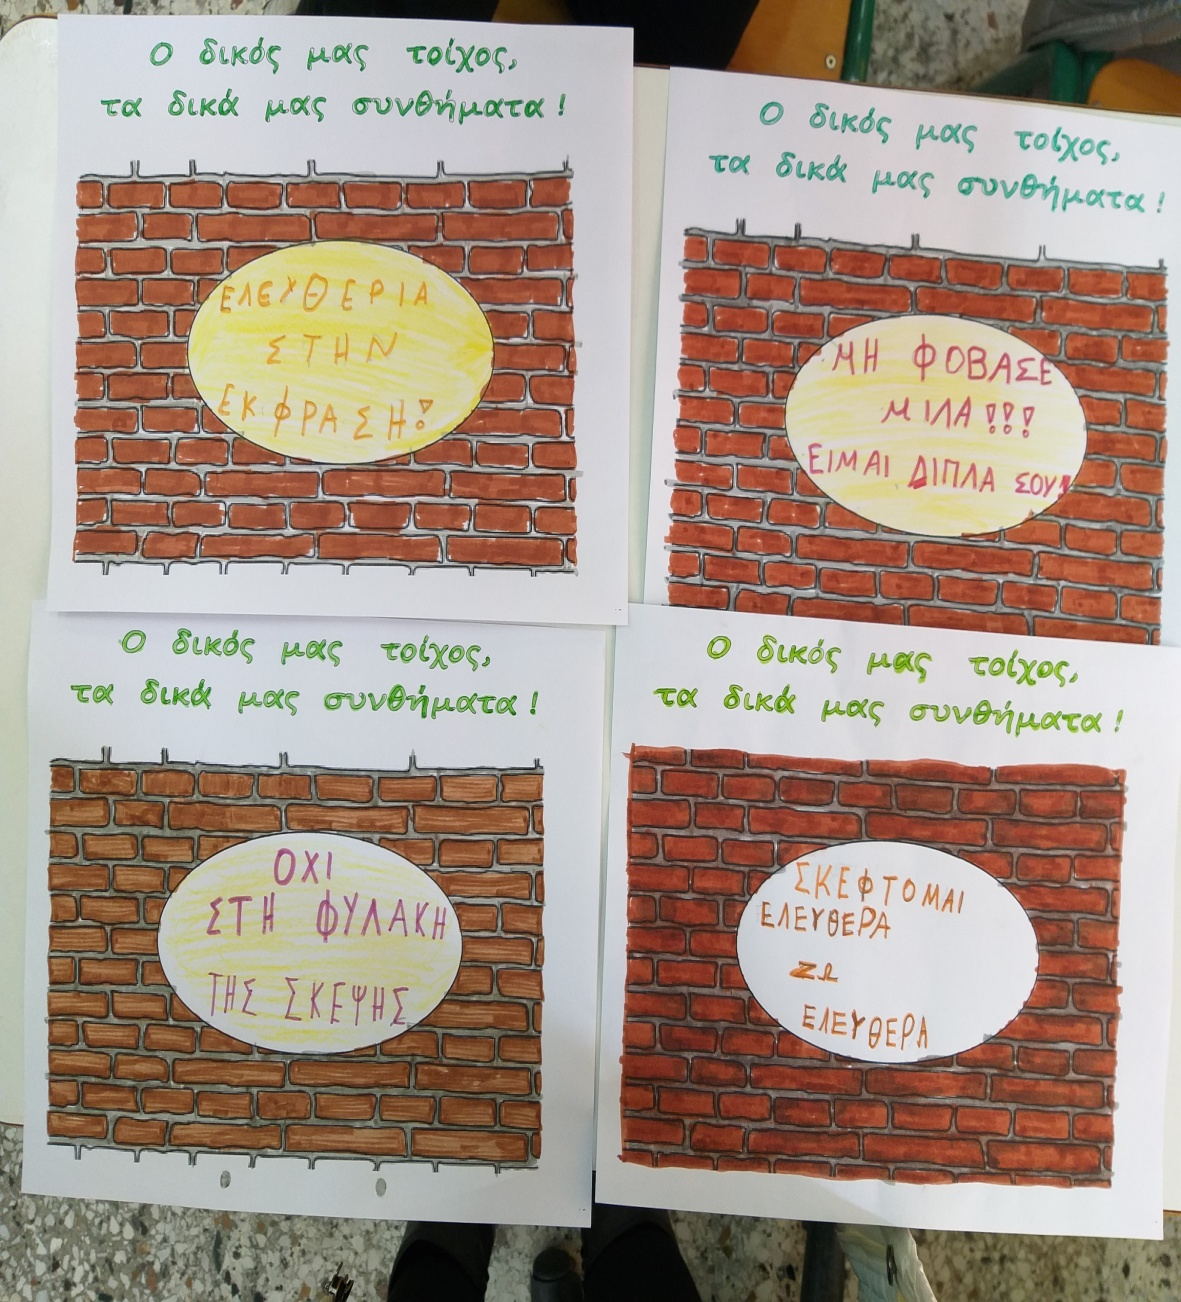 Ο δικός μας τοίχος,
τα δικά μας συνθήματα!
ΕΛΕΥΘΕΡΙΑ
ΣΤΗΝ
ΕΚΦΡΑΣΗ!
Ο δικός μας τοίχος,
τα δικά μας συνθήματα!
ΜΗ ΦΟΒΑΣΕ
ΜΙΛΑ!!!
ΕΙΜΑΙ ΔΙΠΛΑ ΣΟΥ!
Ο δικός μας τοίχος,
τα δικά μας συνθήματα!
ΟΧΙ
ΣΤΗ ΦΥΛΑΚΗ
ΤΗΣ ΣΚΕΨΗΣ
Ο δικός μας τοίχος,
τα δικά μας συνθήματα!
ΣΚΕΦΤΟΜΑΙ
ΕΛΕΥΘΕΡΑ
ΖΩ
ΕΛΕΥΘΕΡΑ